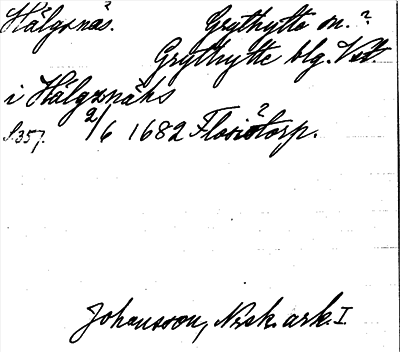 Hälgsnäs. Grythytte sn.?
Grythytte blg. Vstl.
i Hälgxnähs
S. 357. 2/6 1682 Flosiötorp.
?
Johansson, Norsk. ark. I.